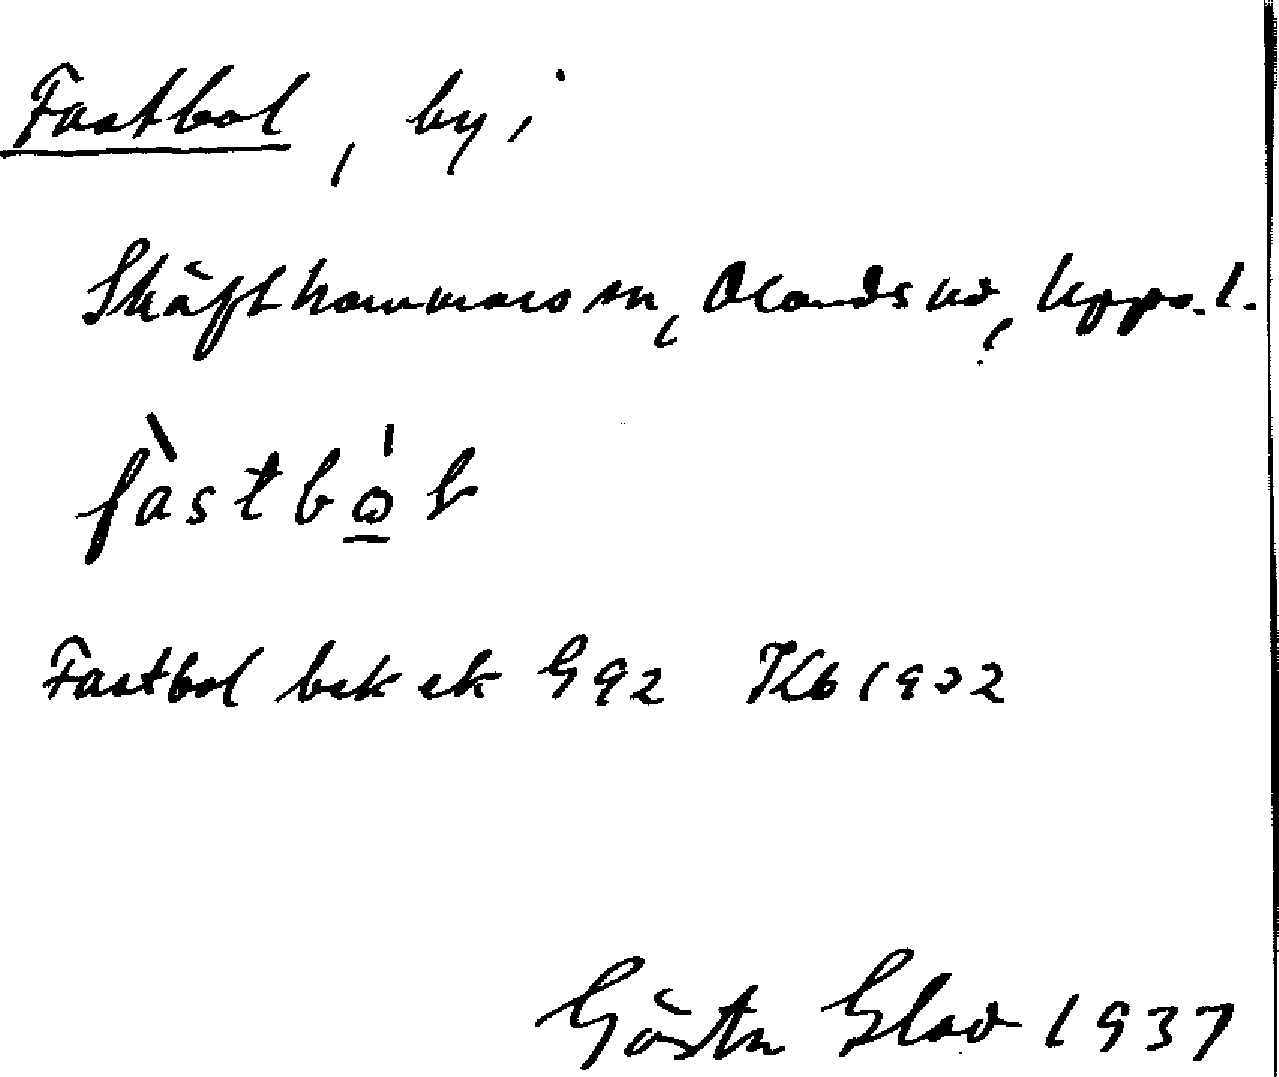 Fastbol, by i
Skäfthammars sn, Olands hd, Upps. l.
fàstbo̲l
Fastbol bek ek G 92 JKb 1902
Gösta Glad 1937